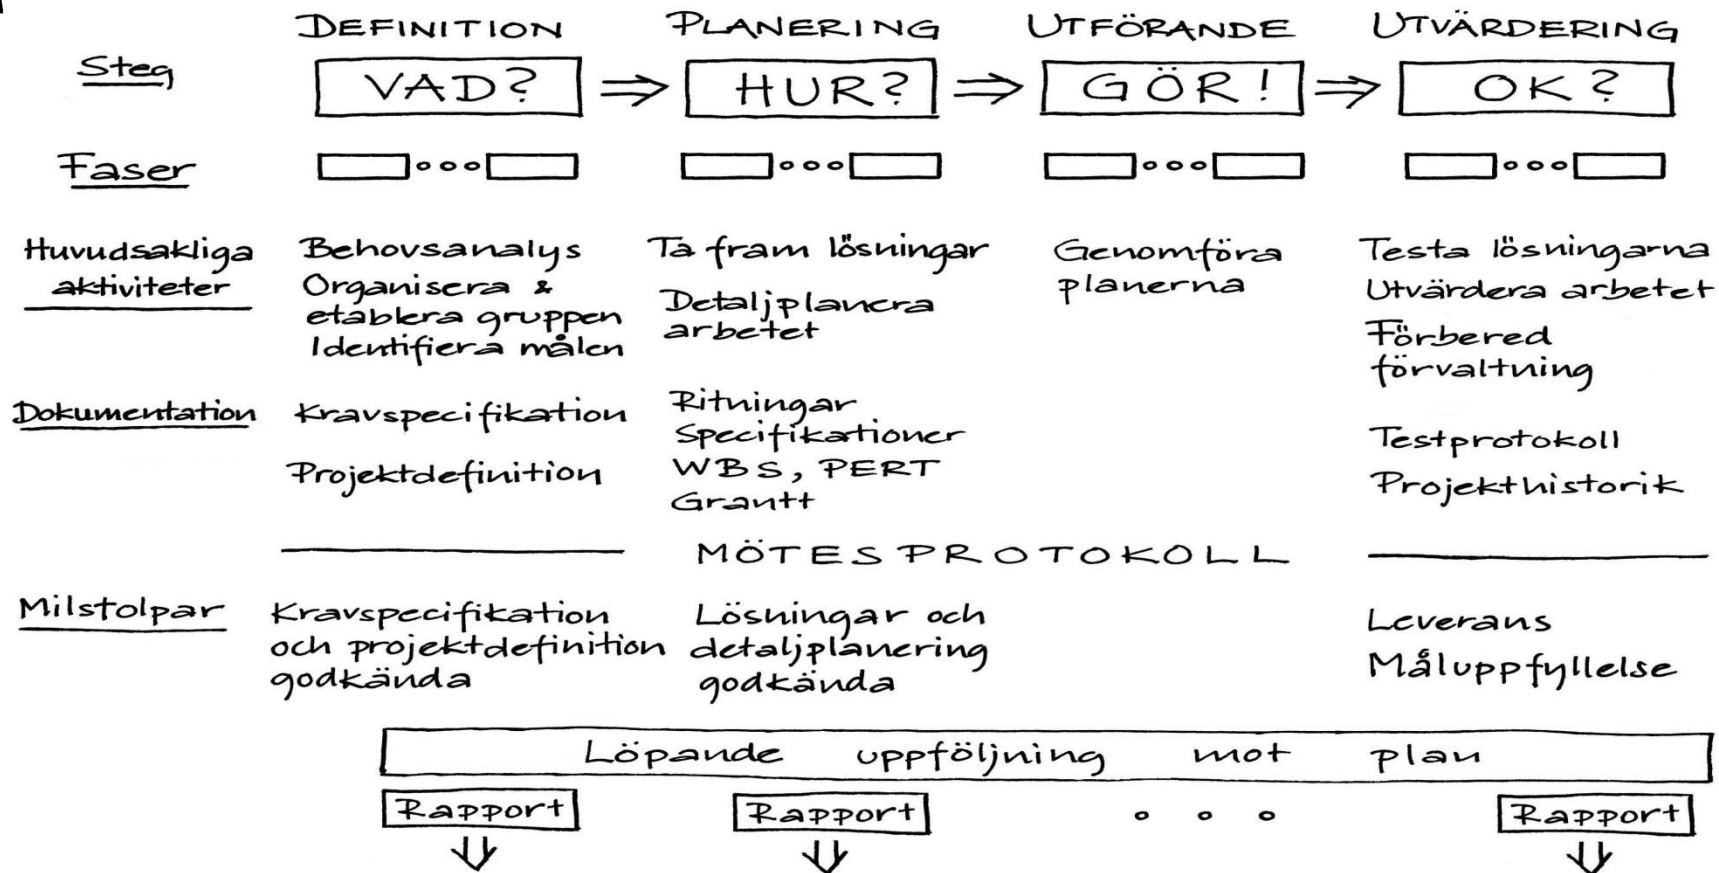 DEFINITION PLANERING UTFÖRANDE UTVÄRDERING
Steg VAD? ⇒ HUR? ⇒ GÖR! ⇒ OK?
Faser
Huvudsakliga
aktiviteter
Behovsanalys
Organisera &
etablera gruppen
Identifiera målen
Ta fram lösningar
Detaljplanera
arbetet
Genomföra
planerna
Testa lösningarna
Utvärdera arbetet
Förbered
förvaltning
Dokumentation
Kravspecifikation
Projektdefinition
Ritningar
Specifikationer
WBS, PERT
Grantt
Testprotokoll
Projekthistorik
MÖTESPROTOKOLL
Milstolpar
Kravspecifikation
och projektdefinition
godkända
Lösningar och
detaljplanering
godkända
Leverans
Måluppfyllelse
Löpande uppföljning mot plan
Rapport Rapport Rapport